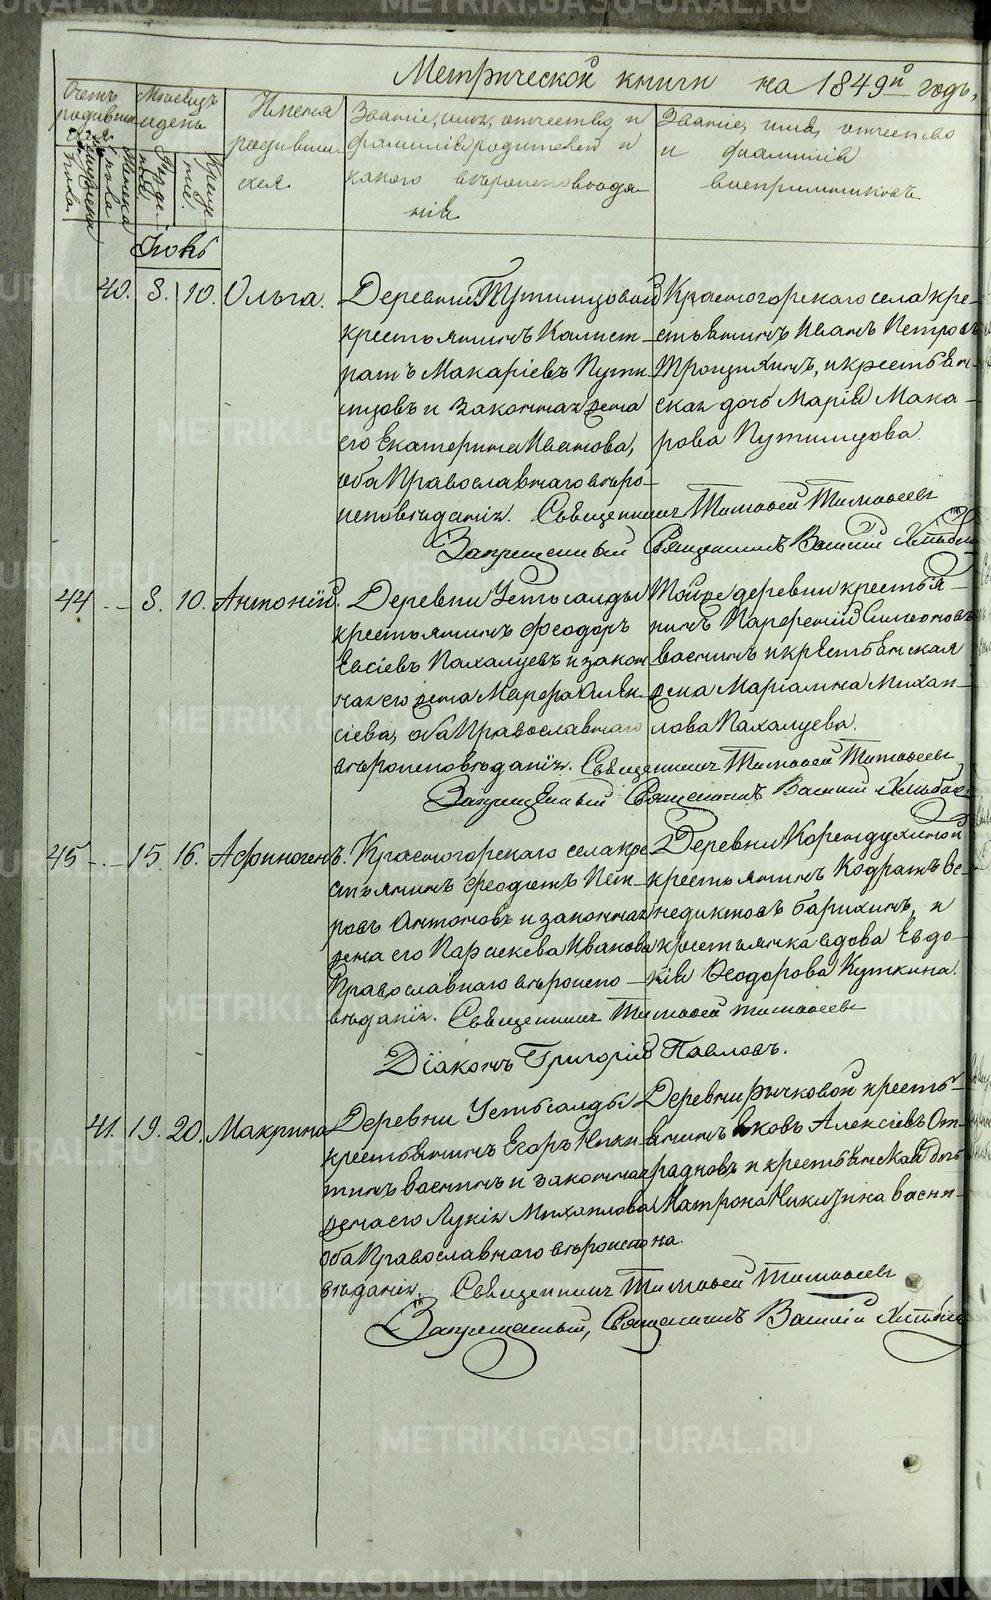 Метрической книги на 1849й годъ,
Счетъ родившихся
Мѣсяцъ и день
Имена родившихся
Званіе, имя, отчество, и фамилія родителей и какого вѣроисповѣданія
Званіе, имя, отчество и фамилія воспріемниковъ
мужеска пола
женска пола
рожденія
крещенія
Іюль
40. 8. 10. Ольга.
Деревни Путимцовой
крестьянинъ Калист-
ратъ Макаріевъ Пути-
мцовъ и законная жена
его Екатерина Иванова,
оба Православнаго вѣро-
исповѣданія.
Красногорскаго села кре-
стьянинъ Иванъ Петровъ
и крестьян-
ская дочь Марія Мака-
рова Путимцова.
Священникъ Тимофей Тимофеевъ
Запрещенный Священникъ Василий
44 - 8. 10. Антоній.
Деревни Устьсалды
крестьянинъ Феодоръ
Евсіевъ Пахалуевъ и закон-
ная его жена Марфа Алек-
сіева, оба Православнаго
вѣроисповѣданія.
Той же деревни крестья-
нинъ Парфеній Симеоновъ
Васнинъ и крестьянская
жена Маріамна Михаи-
лова Пахалуева.
Священникъ Тимофей Тимофеевъ
Запрещенный Священникъ Василий
45 - 15. 16. Афиногенъ.
Красногорскаго села кре-
стьянинъ Феодотъ Пет-
ровъ Антоновъ и законная
жена его Параскева Иванова
Православнаго вѣроиспо-
вѣданія.
Деревни
крестьянинъ Кодратъ Ве-
недиктовъ Барихинъ, и
крестьянка вдова Евдо-
кія Феодорова Куткина.
Священникъ Тимофей Тимофеевъ
Діаконъ Григорій Павловъ.
41. 19. 20. Макрина
Деревни Устьсалды
крестьянинъ Егоръ Ники-
тинъ Васнинъ и законная
жена его Лукія Михаилова
оба Православнаго вѣроиспо-
вѣданія.
Деревни Рычковой кресть-
янинъ Яковъ Алексіевъ От-
радновъ и крестьянская дочь
Матрона Никитина Васни-
на.
Священникъ Тимофей Тимофеевъ
Запрещенный, Священникъ Василій